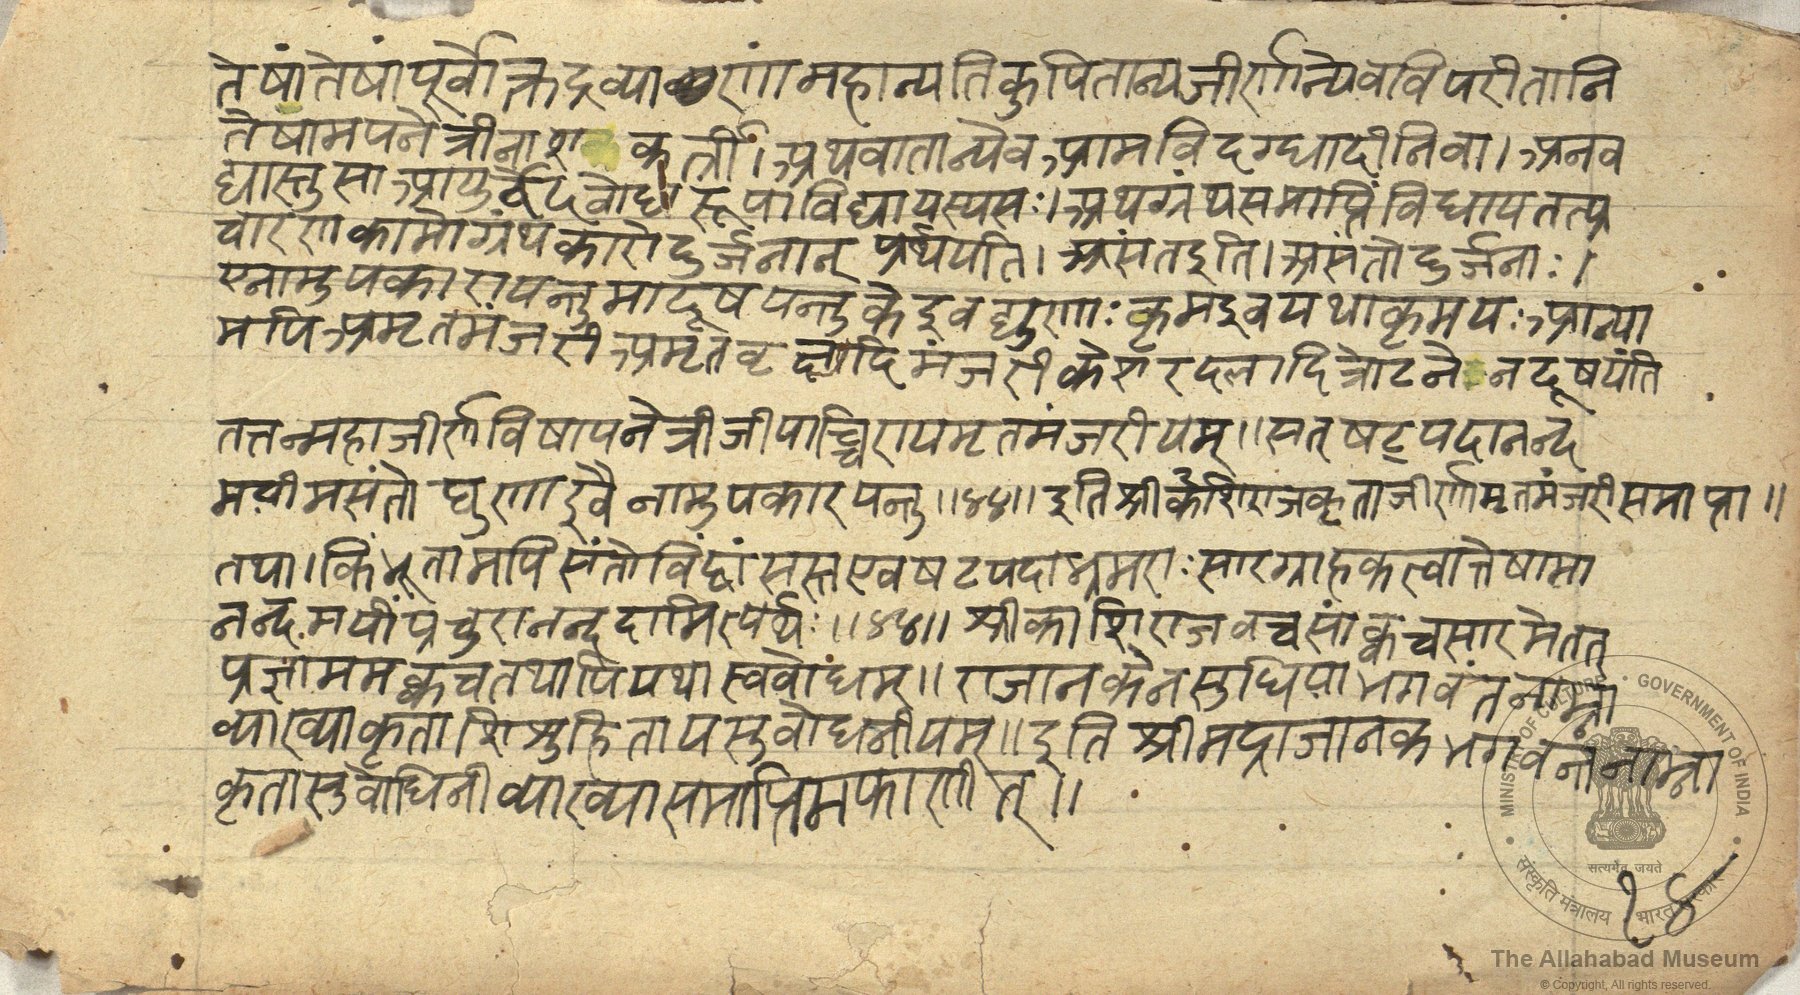 तेषां तेषां पूर्वोक्तद्रव्याणां महान्यतिकुपितान्यजीर्णान्येव विपरीतानि
तेषामपनेत्री नाशकर्त्री । अथवा तान्येव आमविदग्धादीनि वा । अनव
द्यास्तु सा आयुर्वेदबोधरूपा विद्या यस्य सः । अथ ग्रंथसमाप्तिं विधाय तत्प्र
चारणकामो ग्रंथकारो दुर्जनान् प्रर्थयति । असंत इति । असंतो दुर्जनाः ।
एनामुपकारयन्तु मा दूषयन्तु के इव घुणाः कृमइव यथा कृमयः आन्या
मपि अमृतमंजरी अमृत मंजरी केसरदलादित्रोटनेन दूषयंति
तत्तन्महाजीर्णविषापनेत्री जीयाच्चिरायमृतमंजरीयम् ॥ सत् षट्पदानन्द
मयीमसंतो घुणा इवैनामुपकारयन्तु ॥४४॥ इति श्रीकेशिराजकृताजीर्णामृतमंजरी समाप्ता ॥
तया । किंभूतामपि संतो विद्वांसस्त एव षटपदा भ्रमराः सारग्राहकत्वात्तेषामा
नन्दमयीं प्रचुरानन्ददामित्यर्थः ॥४४॥ श्रीकाशिराजवचसां क्वच सारमेतत्
प्रज्ञा मम क्वच तथापि यथास्वबोधम् ॥ राजानकेन सुधिया भगवंतनाम्ना
व्याख्या कृता शिशुहिताय सुबोधनीयम् ॥ इति श्रीमद्राजानकभगवन्तनाम्ना
कृता सुबोधिनी व्याख्या समाप्तिमफाणीत् ॥
१४
MINISTRY OF CULTURE • GOVERNMENT OF INDIA
सत्यमेव जयते
संस्कृति मंत्रालय भारत सरकार
The Allahabad Museum
© Copyright, All rights reserved.